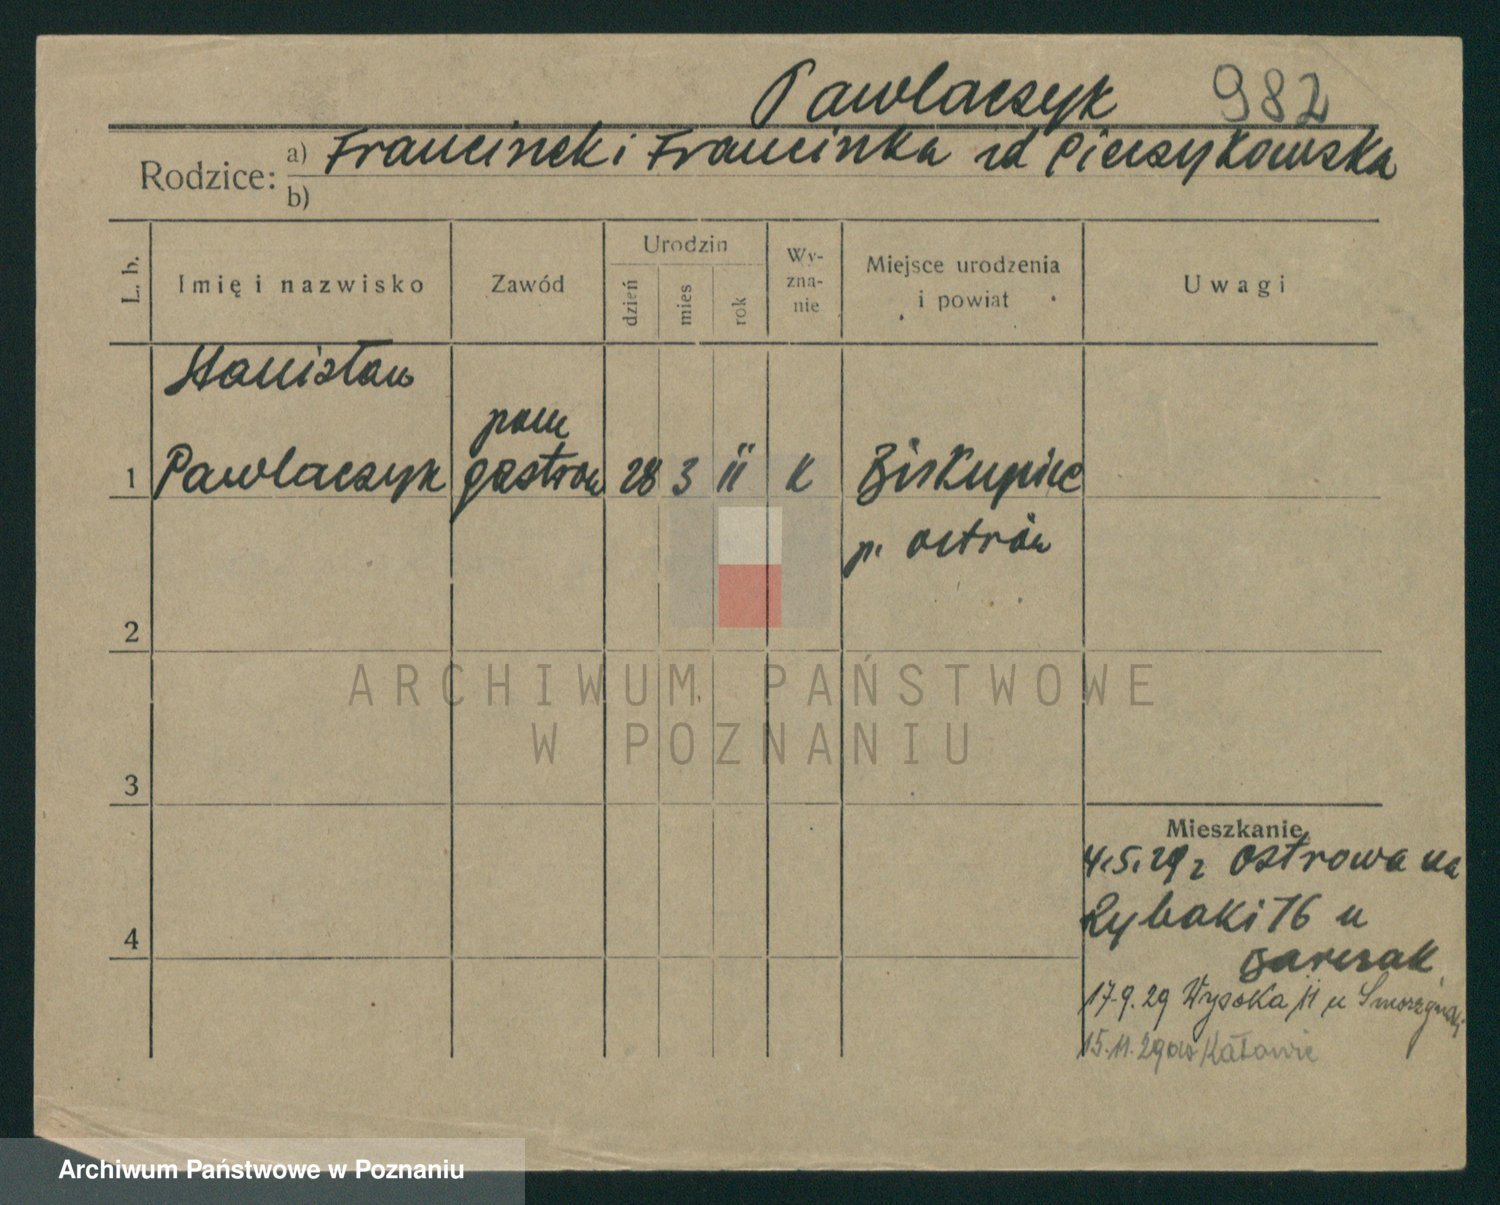 Pawlaczyk 982
Rodzice: a) Franciszek i Franciszka zd Pierzykowska
b)
L. b.
Imię i nazwisko
Zawód
Urodzin
dzień
mies
rok
Wy-
zna-
nie
Miejsce urodzenia
i powiat
Uwagi
Stanisław
pom
1 Pawlaczyk gastron 28 3 11 k Biskupice
p. Ostrów
2
ARCHIWUM PAŃSTWOWE
W POZNANIU
3
Mieszkanie
4.5.29 z Ostrowa na
Rybaki 16 u
4
Barczak
17.9.29 Wysoka 11 u
15.11.29 do Katowic
Archiwum Państwowe w Poznaniu